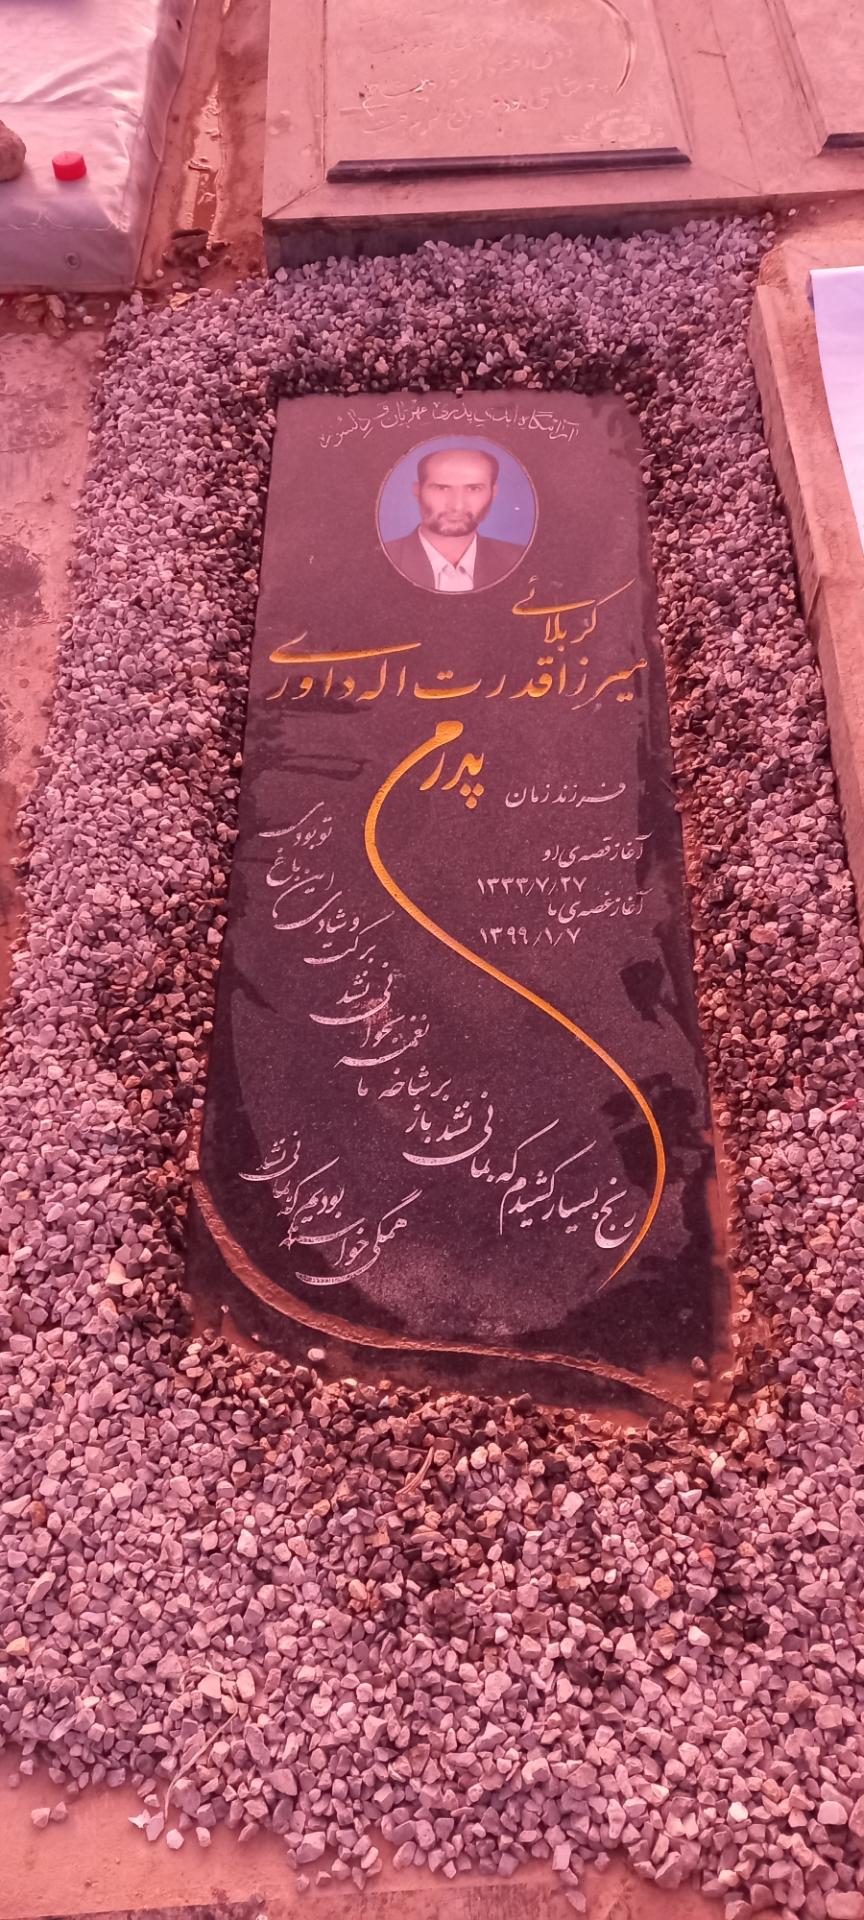 آرامگاه ابدی پدری مهربان و دلسوز
کربلائی
میرزا قدرت اله داوری
پدرم
فرزند زمان
آغاز قصه ی او
۱۳۳۳/۷/۲۷
آغاز غصه ی ما
۱۳۹۹/۱/۷
تو بودی
این باغ
و شادی
برکت
نی نشد
بخوا
نغمه
بر شاخه ما
نی نشد باز
رنج بسیار کشیدم که بما
نی نشد
بودیم که بما
همگی خواسته